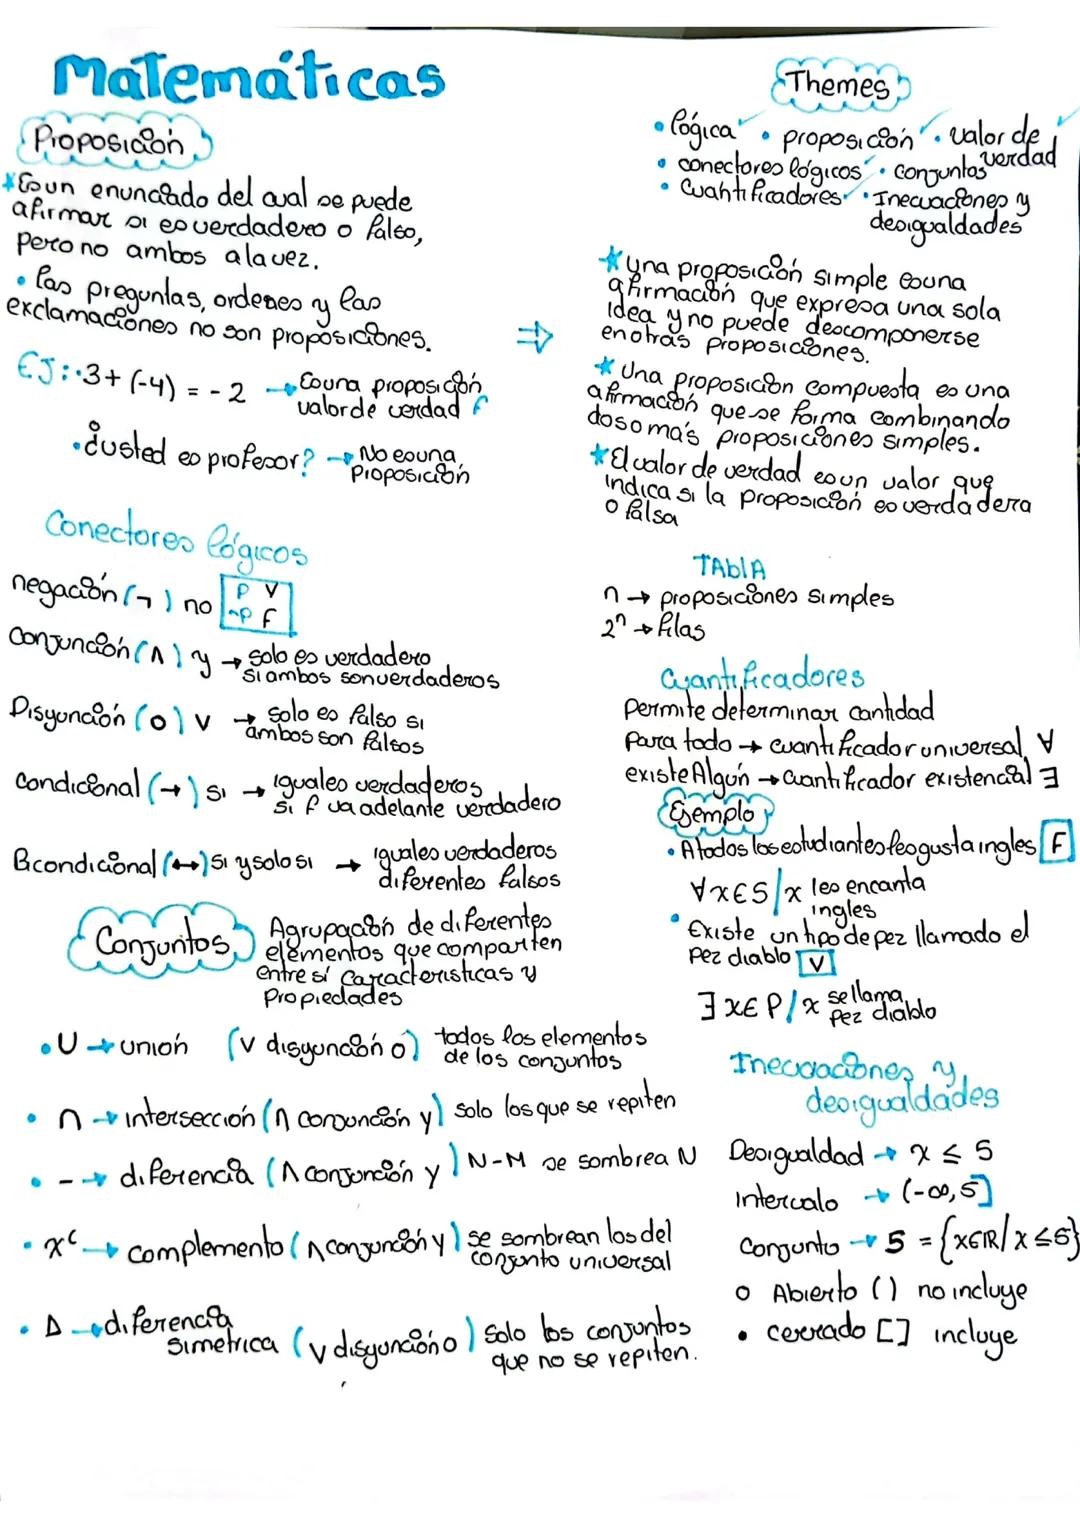 Matemáticas
Proposición
*Es un enunciado del cual se puede
afirmar si es verdadero o falso,
pero no ambos a la vez.
• las preguntas, ordenes y las
exclamaciones no son proposiciones.
EJ: •3+(-4) = -2 → Es una proposición
valor de verdad f
•¿usted es profesor? → No es una
Proposición
Conectores lógicos
negación (¬) no
p V
¬p F
Conjunción (∧) y → solo es verdadero
si ambos son verdaderos
Disyunción (o) v → solo es falso si
ambos son falsos
condicional (→) si → iguales verdaderos
si f va adelante verdadero
Bicondicional (↔) si y solo si → iguales verdaderos
diferentes falsos
Conjuntos
Agrupación de diferentes
elementos que comparten
entre sí caracteristicas y
Propiedades
• U → unión (v disyunción o) todos los elementos
de los conjuntos
• ∩ → intersección (∩ conjunción y) solo los que se repiten
• - → diferencia (∧ conjunción y) N-M se sombrea N
• x^c → complemento (∧ conjunción y) se sombrean los del
conjunto universal
• Δ → diferencia
simetrica (v disyunción o) solo los conjuntos
que no se repiten.
Themes
• lógica • proposición • valor de
verdad
• conectores lógicos • conjuntos
• Cuantificadores • Inecuaciones y
desigualdades
⇒
* Una proposición simple es una
afirmación que expresa una sola
idea y no puede descomponerse
en otras proposiciones.
* Una proposición compuesta es una
afirmación que se forma combinando
dos o más proposiciones simples.
* El valor de verdad es un valor que
indica si la proposición es verdadera
o falsa
TAblA
n → proposiciones simples
2^n → filas
Cuantificadores
Permite determinar cantidad
Para todo → cuantificador universal ∀
existe Algún → cuantificador existencial ∃
Ejemplo
• A todos los estudiantes les gusta ingles F
∀x∈S/x les encanta
ingles
• Existe un tipo de pez llamado el
Pez diablo V
∃ x∈P/x se llama
pez diablo
Inecuaciones y
desigualdades
Desigualdad → x ≤ 5
Intervalo → (-∞,5]
Conjunto → S = {x∈IR/x ≤5}
o Abierto () no incluye
• cerrado [] incluye